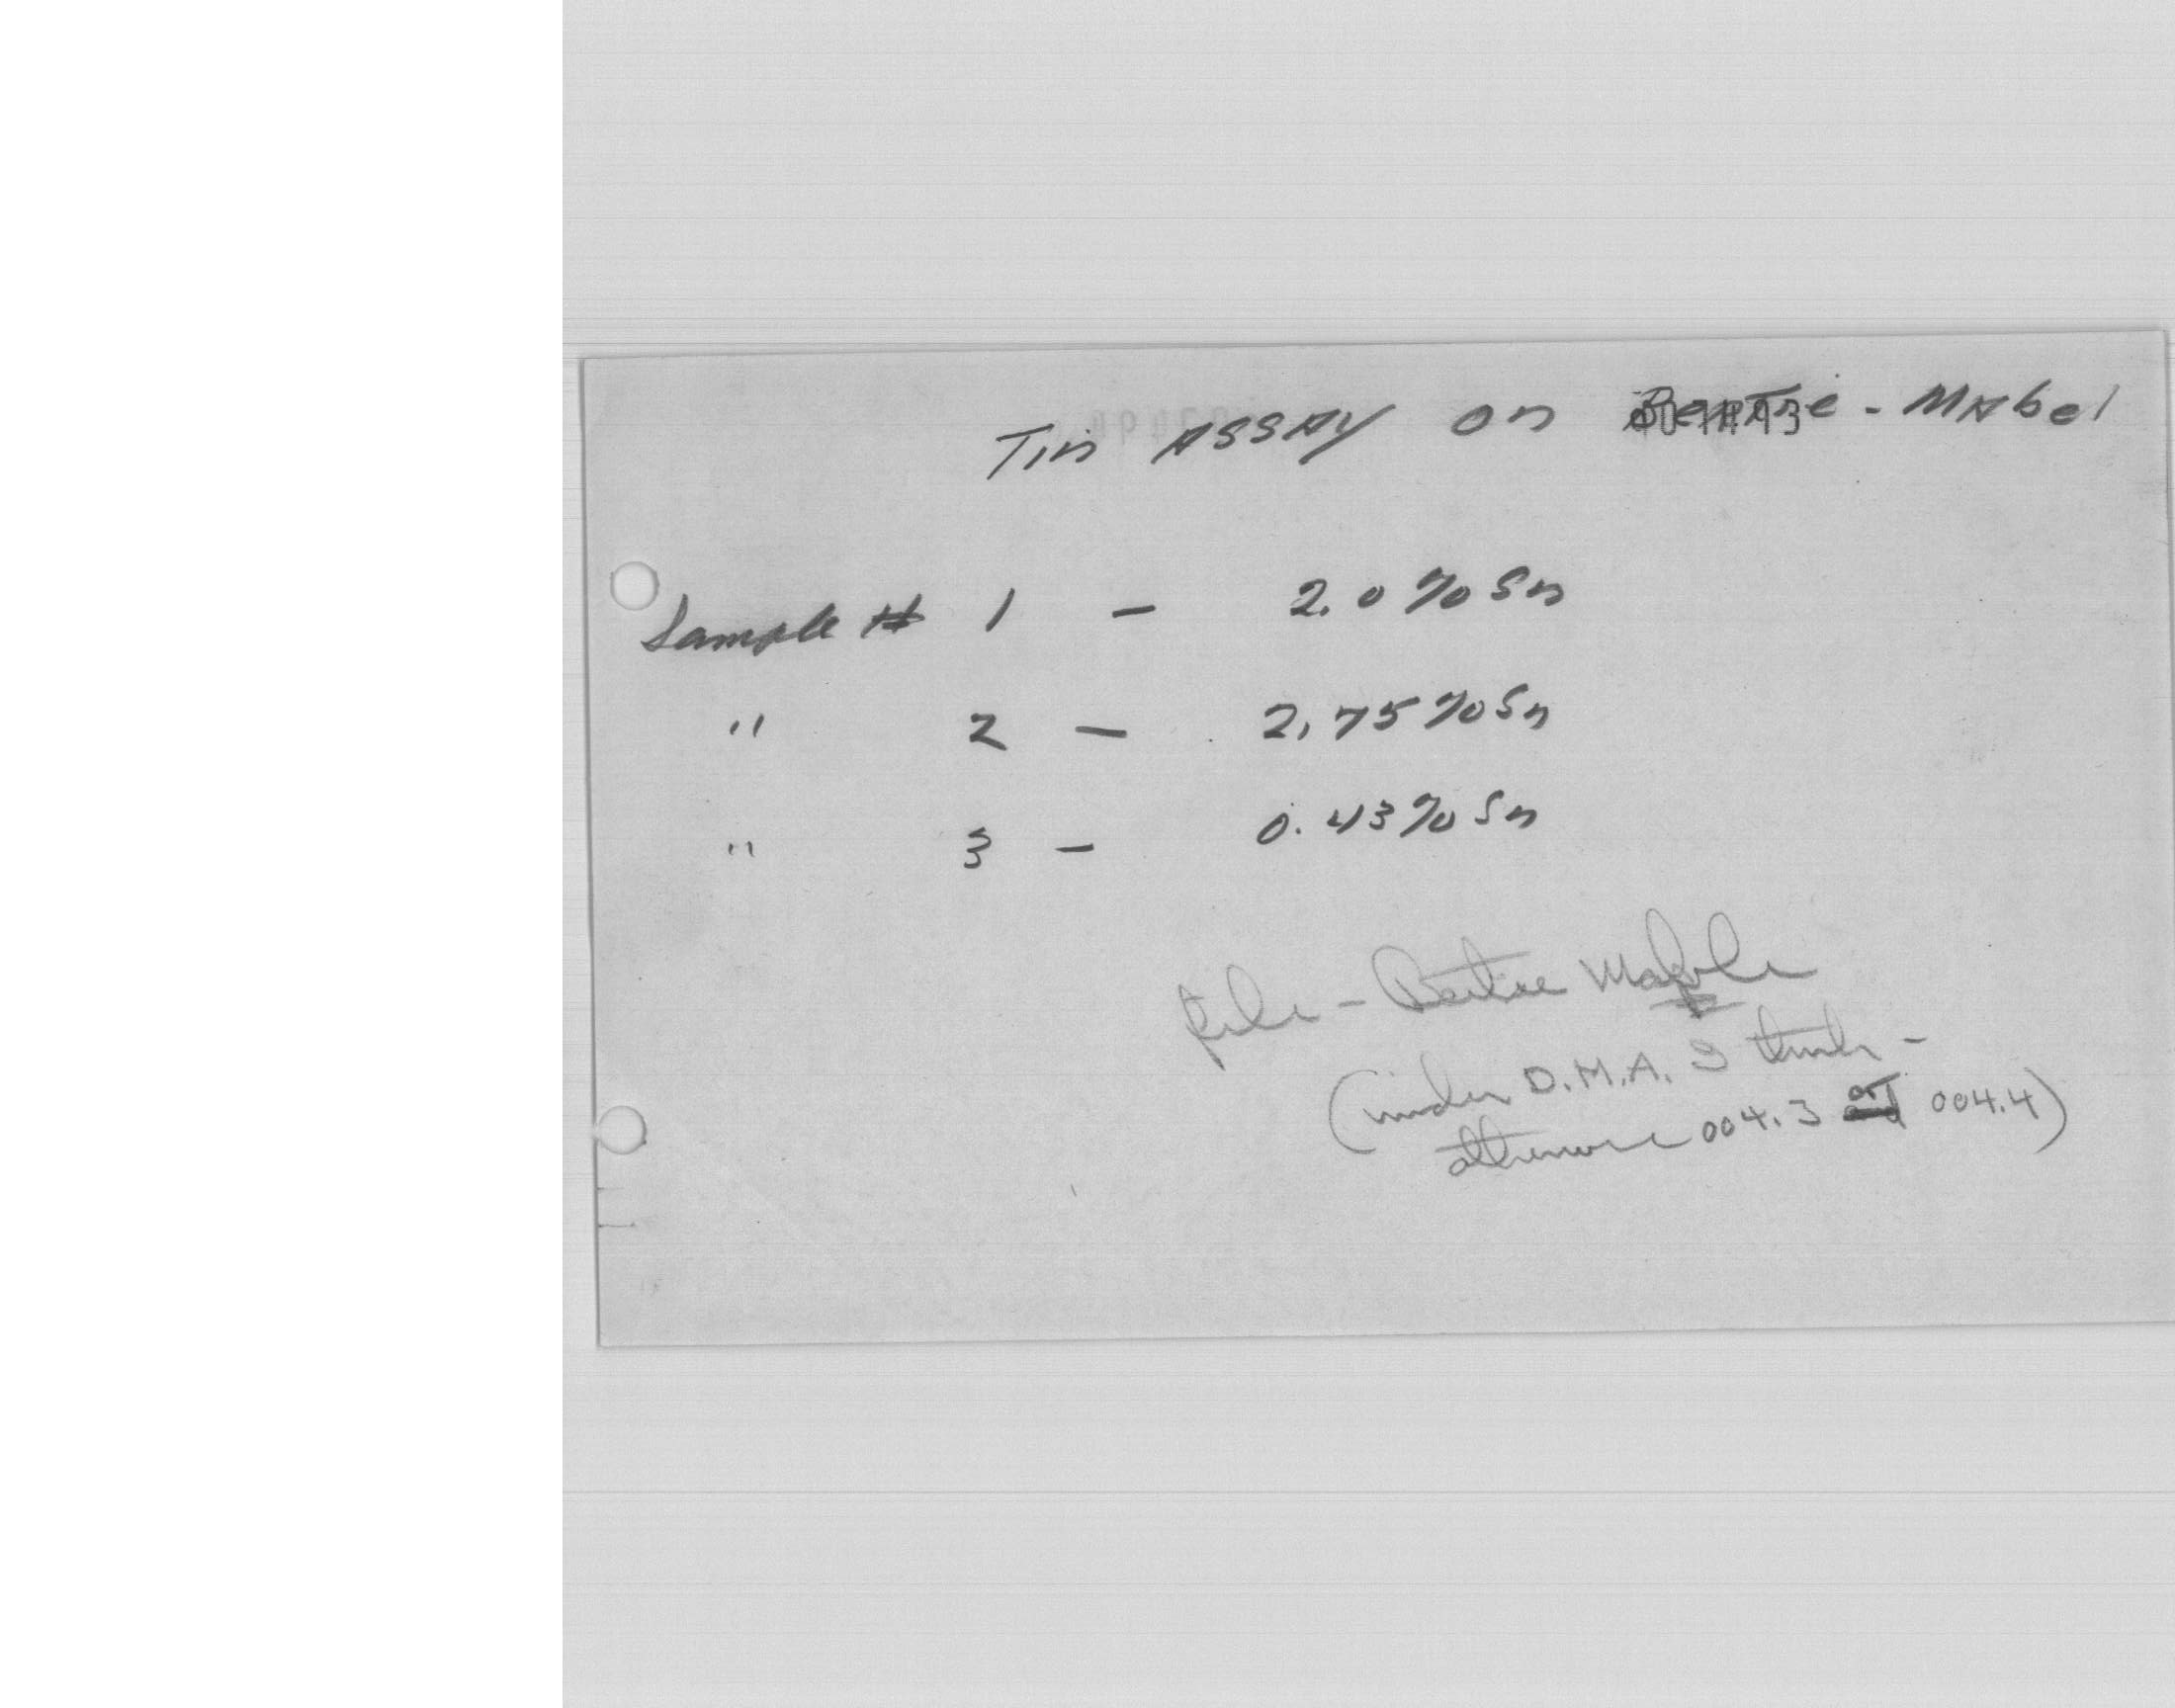 Tin ASSAY on Bertie - Mabel
Sample # 1 - 2.0% Sn
" 2 - 2.75% Sn
" 3 - 0.43% Sn
file - Bertie Maple
(under D.M.A. I think -
otherwise 004.3 or 004.4)